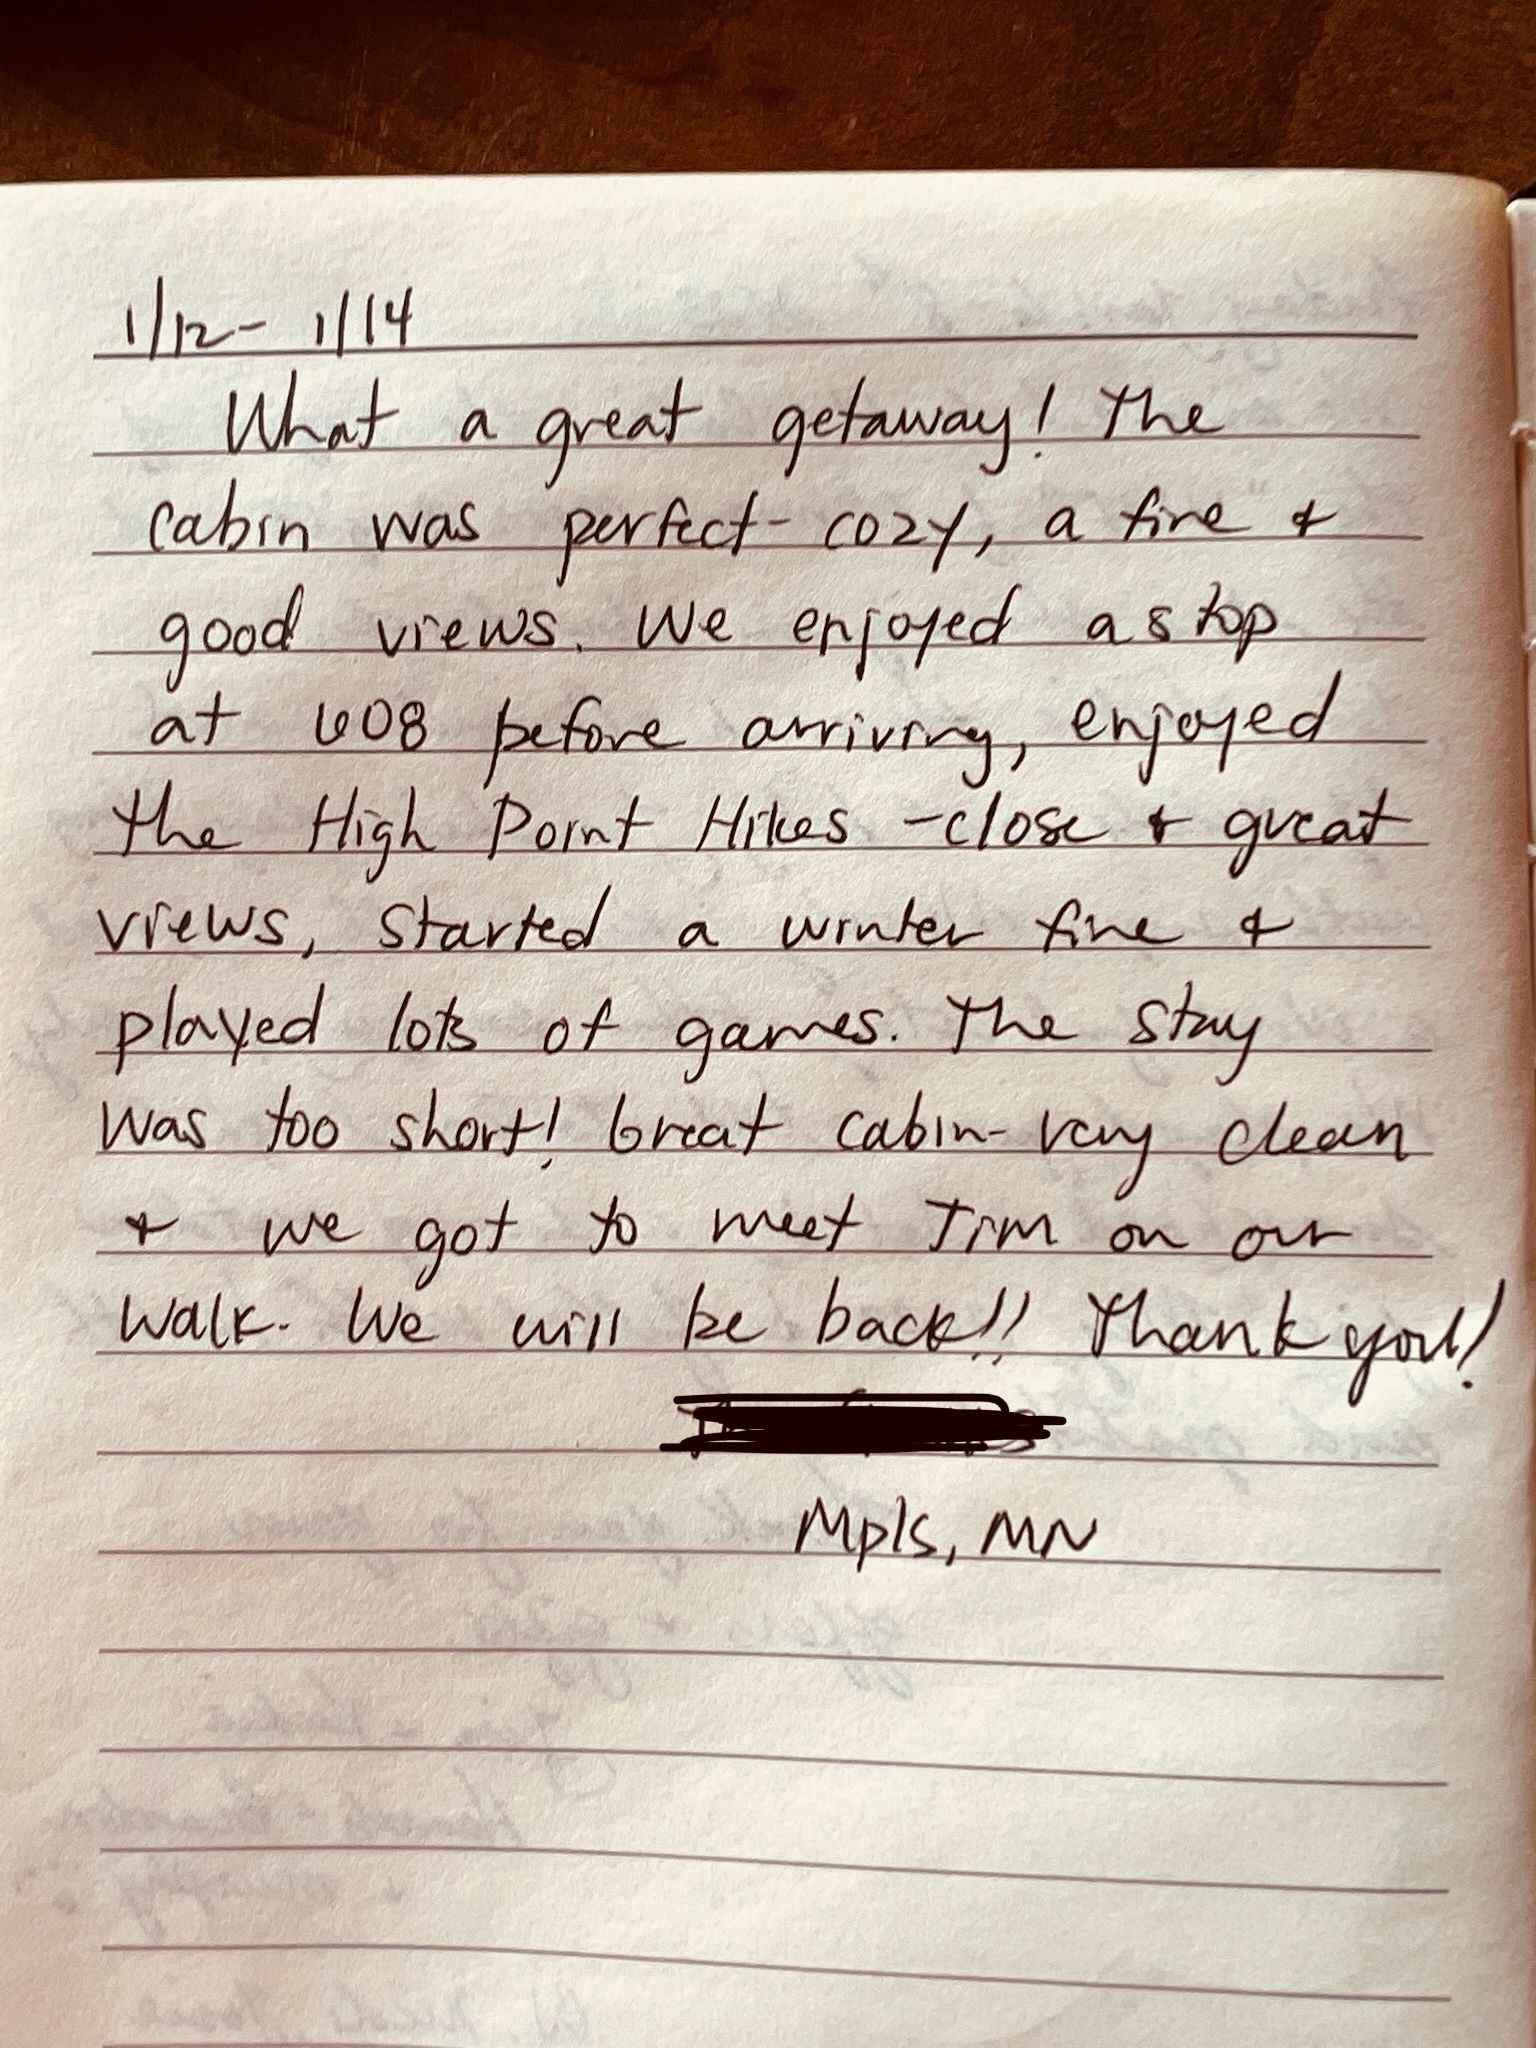 1/12 - 1/14
What a great getaway! The
cabin was perfect - cozy, a fire &
good views. We enjoyed a stop
at 608 before arriving, enjoyed
the High Point Hikes - close & great
views, started a winter fire &
played lots of games. The stay
was too short! Great cabin - very clean
& we got to meet Tim on our
walk. We will be back!! Thank you!
Mpls, MN